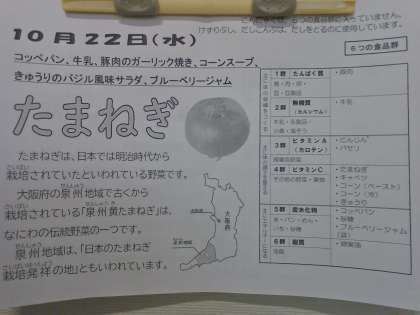 こんだては、6つの食品群に入っていません。
けずりぶし、だしこんぶは、だしをとるのに使用しています。
10月22日(水)
コッペパン、牛乳、豚肉のガーリック焼き、コーンスープ、
きゅうりのバジル風味サラダ、ブルーベリージャム
たまねぎ
たまねぎは、日本では明治時代から
栽培されていたといわれている野菜です。
大阪府の泉州地域で古くから
栽培されている「泉州黄たまねぎ」は、
なにわの伝統野菜の一つです。
泉州地域は、「日本のたまねぎ
栽培発祥の地」ともいわれています。
大阪府
泉州地域
6つの食品群
1群 たんぱく質
・豚肉
2群 無機質
(カルシウム)
・牛乳
3群 ビタミンA
(カロテン)
・にんじん
・パセリ
4群 ビタミンC
・たまねぎ
・キャベツ
・コーン(ペースト)
・コーン(冷)
・きゅうり
5群 炭水化物
・コッペパン
・砂糖
・ブルーベリージャム
(袋)
6群 脂質
・綿実油